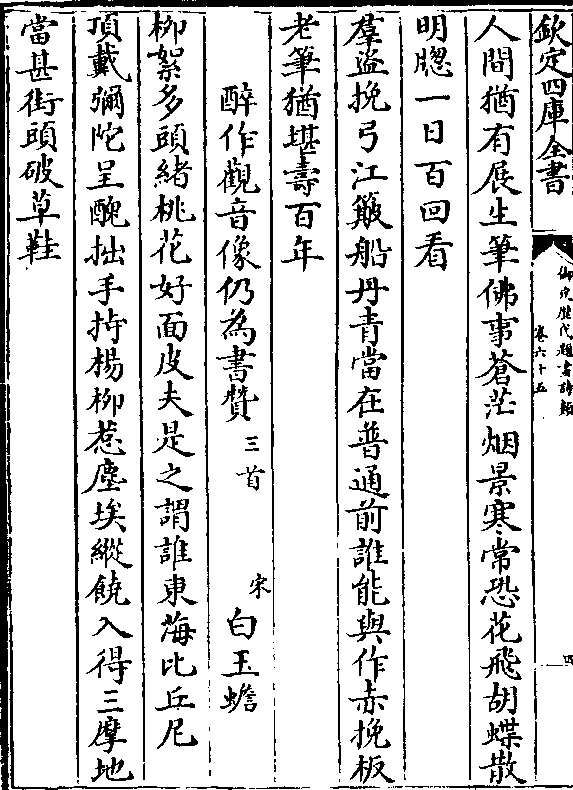 欽定四庫全書
御定歴代題畫詩類
卷六十五
四
人間猶有展生筆佛事蒼茫烟景寒常恐花飛胡蝶散
明牕一日百回看
羣盜挽弓江簸船丹青當在普通前誰能與作赤挽板
老筆猶堪壽百年
醉作觀音像仍為書贊三首 宋 白玉蟾
柳絮多頭緒桃花好面皮夫是之謂誰東海比丘尼
頂戴彌陀呈醜拙手持楊柳惹塵埃縱饒入得三摩地
當甚街頭破草鞋